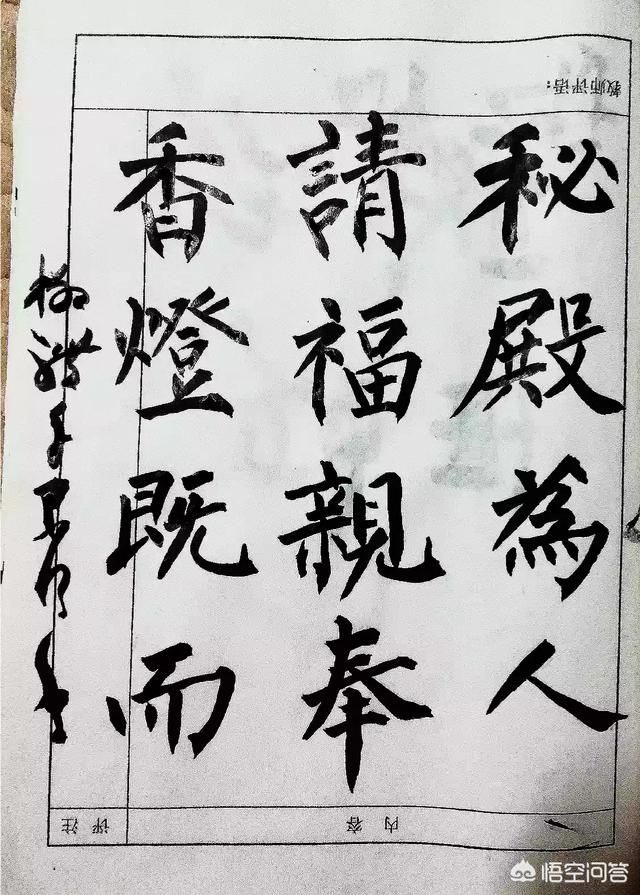 教师评语:
秘殿為人
請福親奉
香燈既而
内容
评注
悟空问答